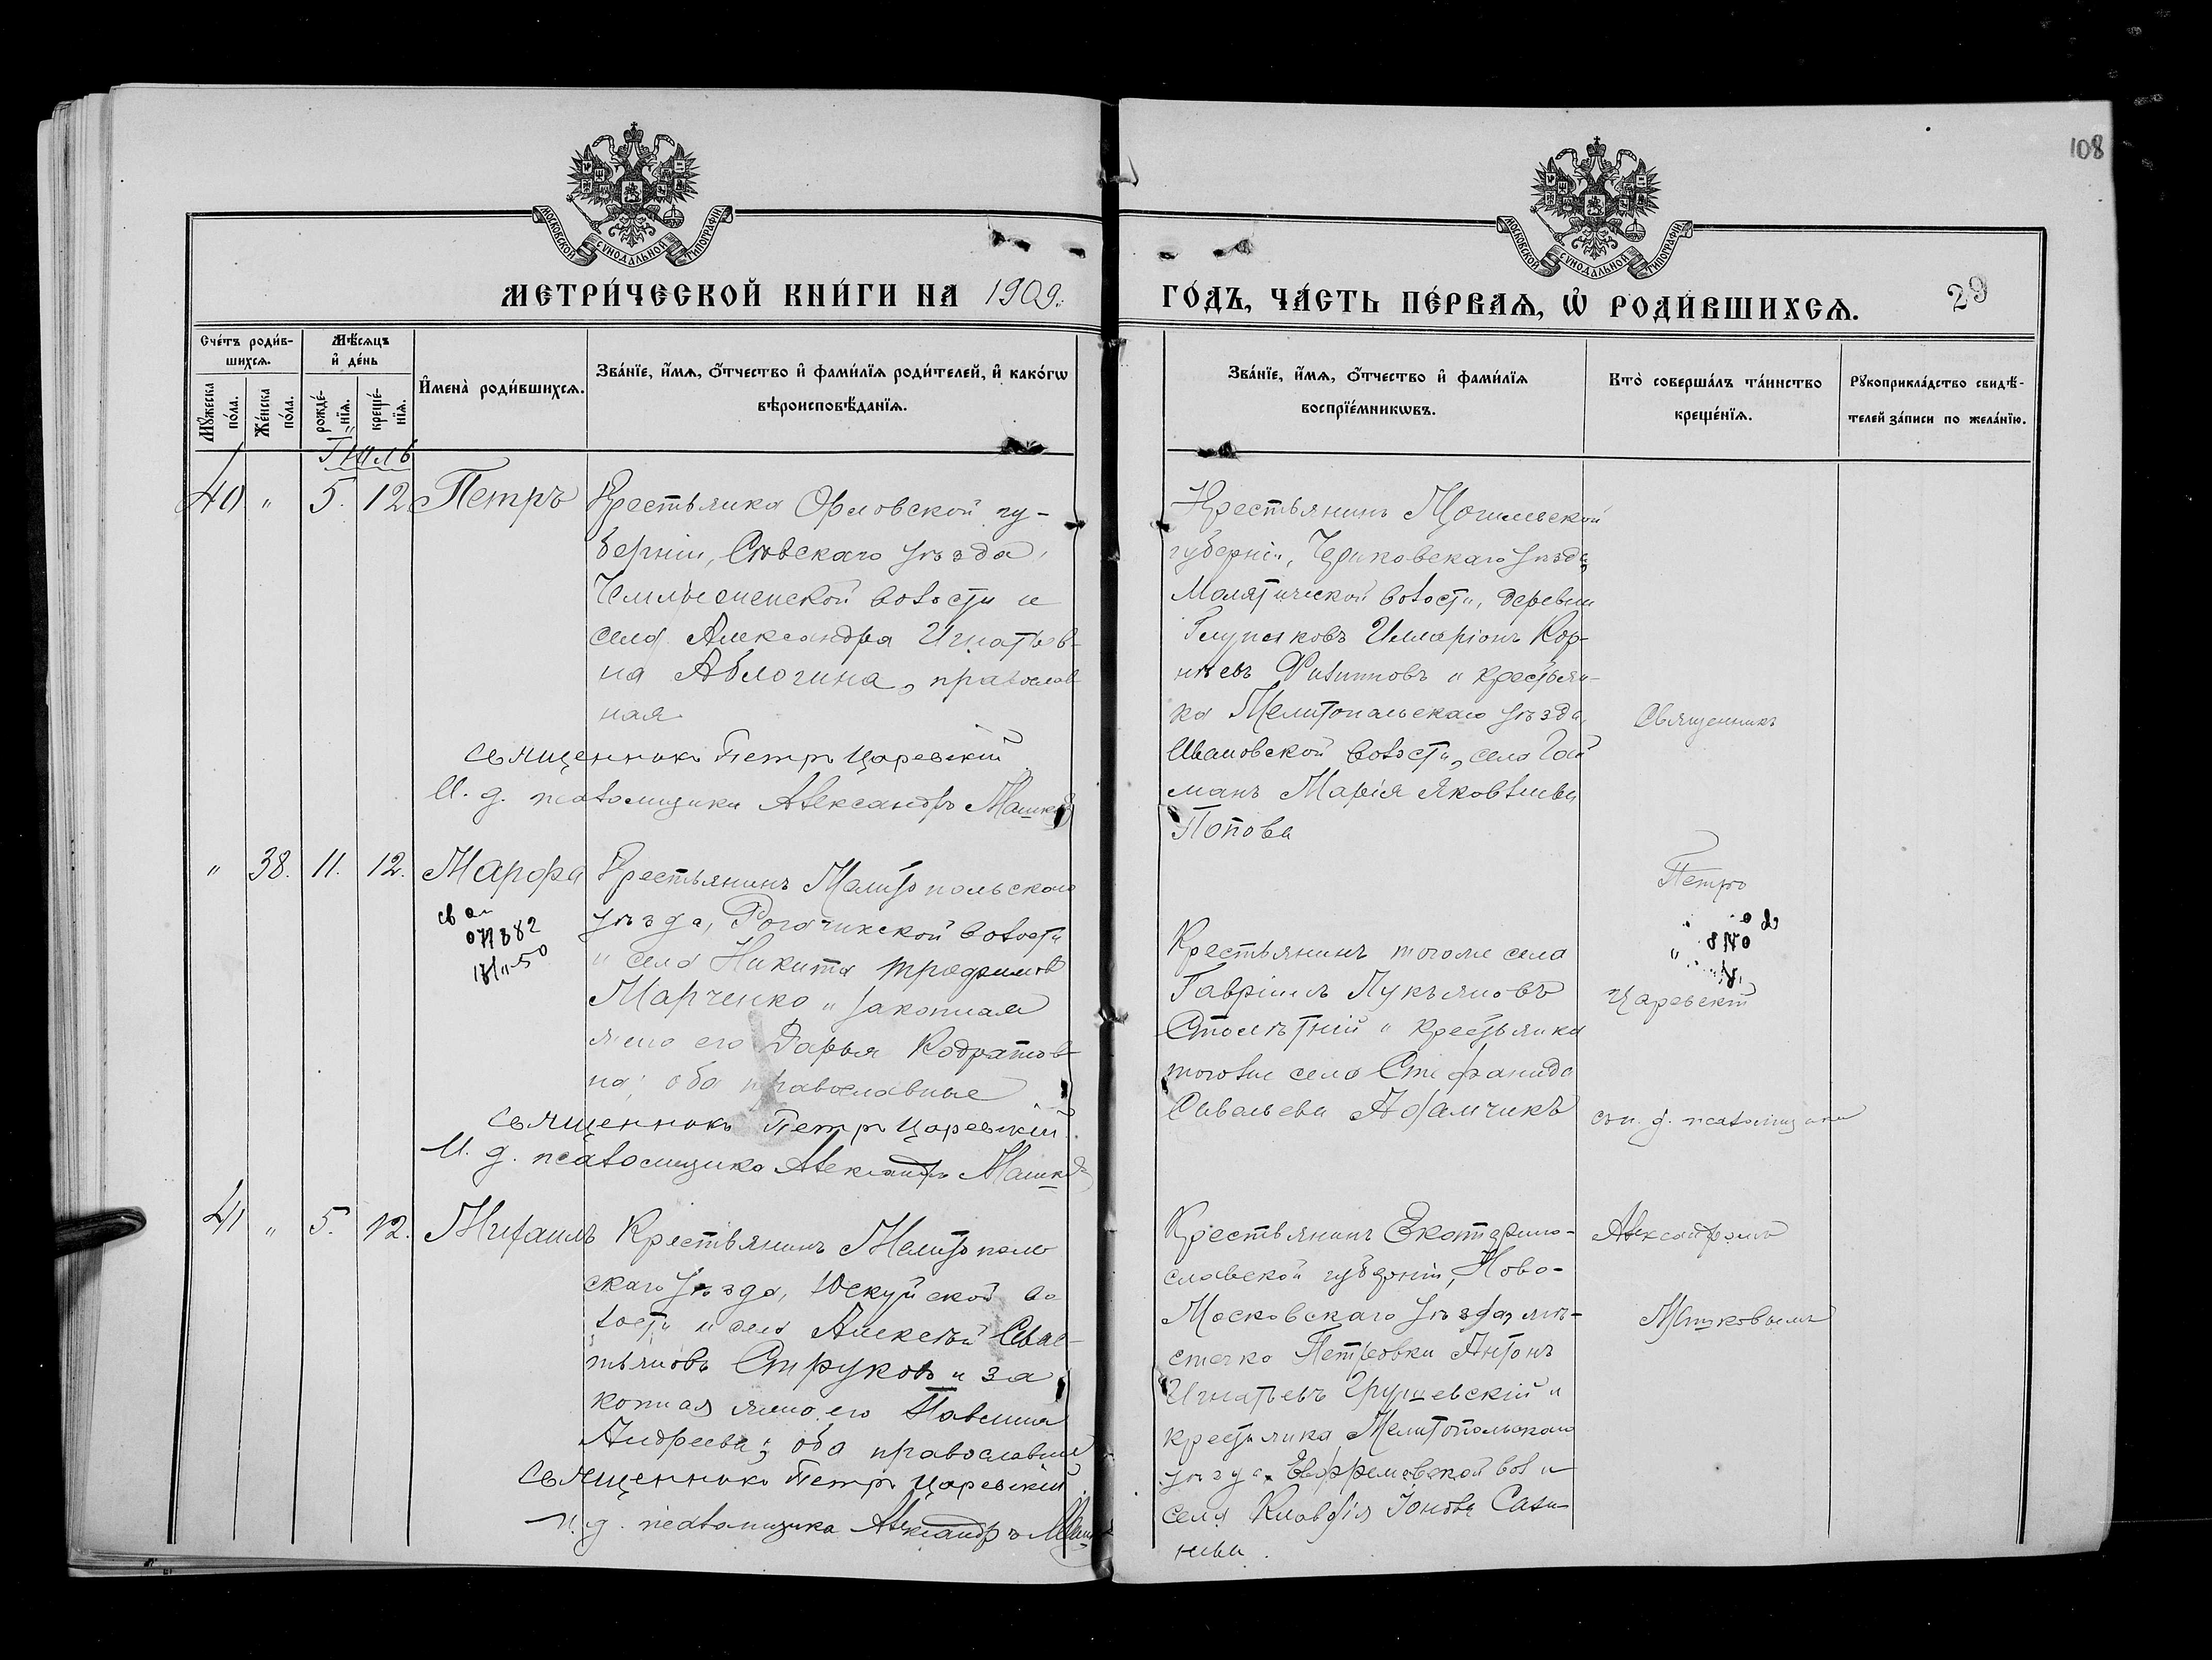 108
МОСКОВСКОЙ СУНОДАЛЬНОЙ ТИПОГРАФІИ
МОСКОВСКОЙ СУНОДАЛЬНОЙ ТИПОГРАФІИ
МЕТРИ́ЧЕСКОЙ КНИ́ГИ НА 1909
ГО́ДЪ, ЧА́СТЬ ПЕ́РВАѦ, Ѡ҆ РОДИ́ВШИХСѦ.
29
Сче́тъ роди́в-
шихсѧ.
Мꙋ́жеска
по́ла.
Же́нска
по́ла.
Мѣ́сяцъ
и҆ де́нь
рожде́-
нїѧ.
креще́-
нїѧ.
И҆мена̀ роди́вшихсѧ.
Зва́нїе, и҆́мѧ, ѻ҆́тчество и҆ фами́лїѧ роди́телей, и҆ како́гѡ
вѣроисповѣ́данїѧ.
Зва́нїе, и҆́мѧ, ѻ҆́тчество и҆ фами́лїѧ
воспрїе́мникѡвъ.
Кто̀ соверша́лъ та́инство
креще́нїѧ.
Рꙋкоприкла́дство свидѣ́-
телей за́писи по жела́нїю.
Іюль
40 " 5. 12 Петръ
Крестьянка Орловской гу-
берніи, Сѣвскаго уѣзда,
волости и
села Александра Игнатьев-
на Аблогина, православ
ная
Священникъ Петръ Царевскій
И. д. псаломщика Александръ Машков
Крестьянинъ Могилевской
губерніи, Чериковскаго уѣзда,
Молятической волости, деревни
Илларіонъ Кор-
нѣевъ Филипповъ и крестьян-
ка Мелитопольскаго уѣзда,
Ивановской волости, села Гай
манъ Марія Яковлева
Попова
Священникъ
" 38. 11. 12. Марфа
св ан
071882
17/II-50
Крестьянинъ Мелитопольскаго
уѣзда, Рогачикской волости
и села Никита Трофимов
Марченко и законная
жена его Дарья Кодратов-
на; оба православные
Священникъ Петръ Царевскій
И. д. псаломщика Александръ Машков
Крестьянинъ тогоже села
Гавріилъ Лукьяновъ
Столѣтній и крестьянка
тогоже села Стефанида
Савельева Адамчикъ
Петръ
Царевскій
съ и. д. псаломщика
41 " 5. 12. Михаилъ
Крестьянинъ Мелитополь
скаго уѣзда, Юзкуйской во
лости и села Алексѣй Евас-
тьяновъ Струковъ и за
конная жена его Павлина
Андреева; оба православные
Священникъ Петръ Царевскій
И. д. псаломщика Александръ Машк
Крестьянинъ Екатерино-
славской губерніи, Ново-
Московскаго уѣзда, мѣ-
стечка Петровки Антонъ
Игнатьевъ Грушевскій и
крестьянка Мелитопольскаго
уѣзда, Ефремовской вол и
села Клавдія Іонова Сали-
нева.
Александромъ
Машковымъ